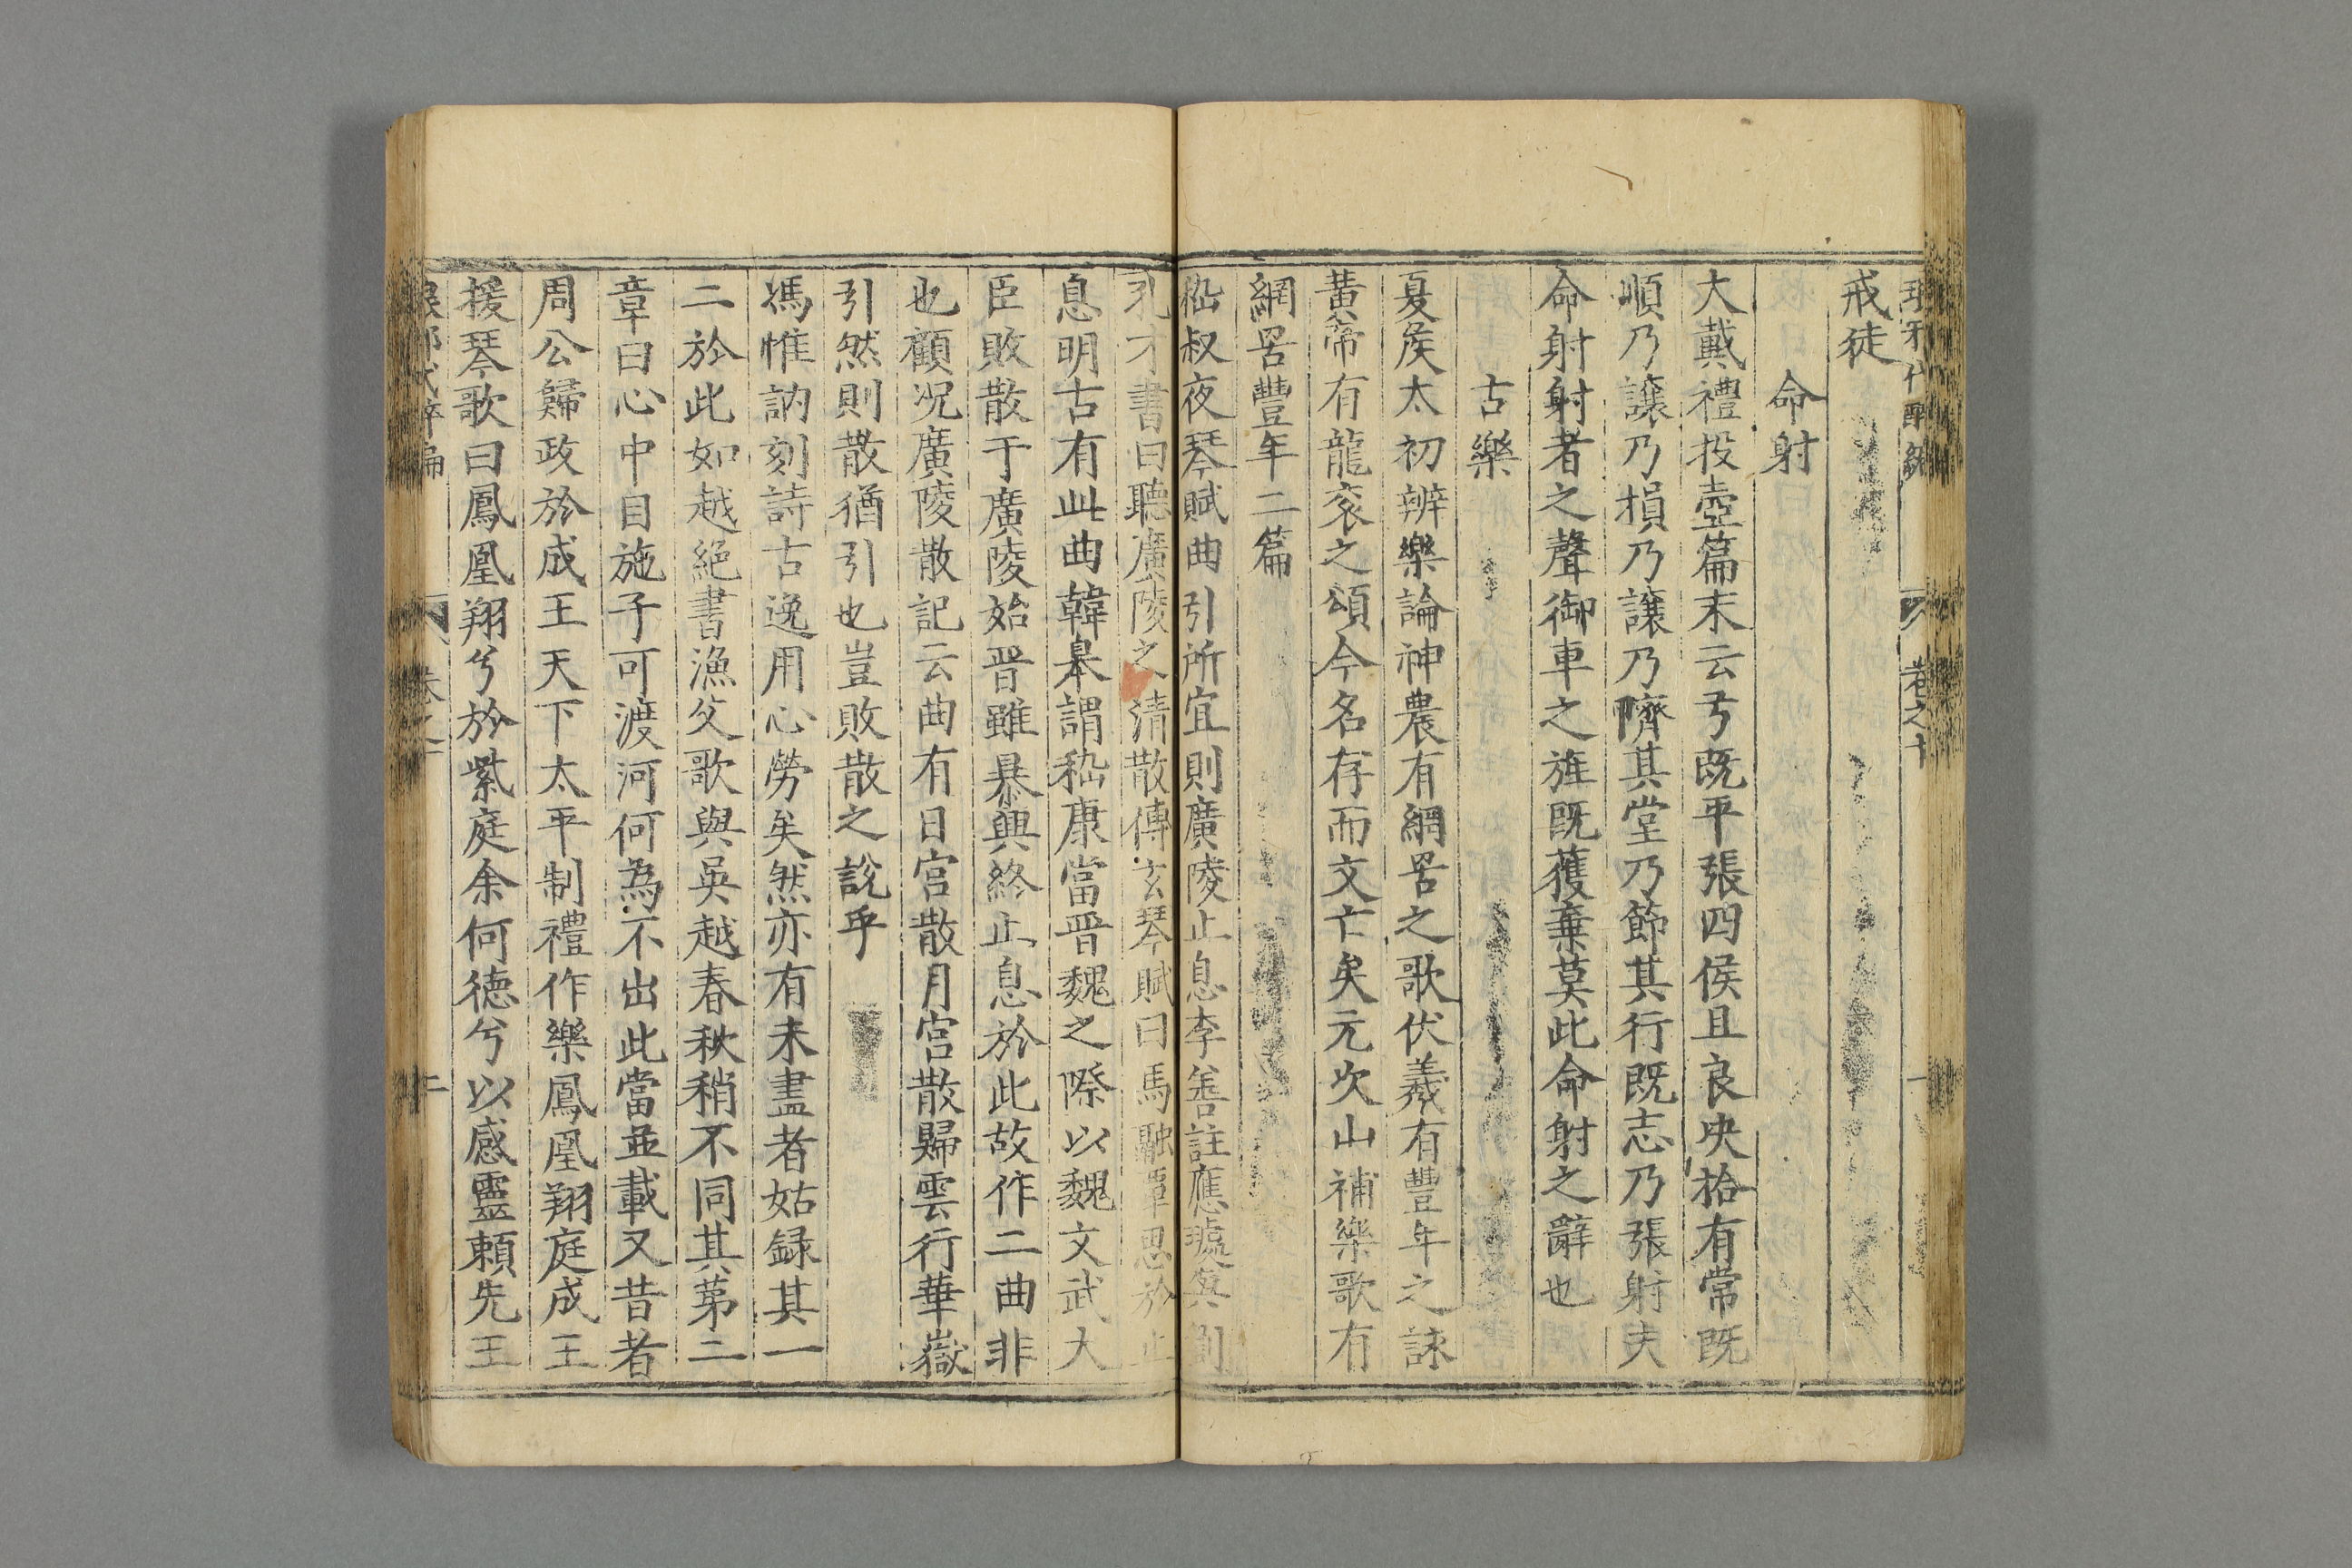 戒徒
命射
大戴禮投壺篇末云弓既平張四侯且良決拾有常既
順乃讓乃損乃讓乃隮其堂乃節其行既志乃張射夫
命射射者之聲御車之旌既獲棄莫此命射之辭也
古樂
夏矦太初辨樂論神農有網罟之歌伏羲有豐年之詠
黃帝有龍袞之頌今名存而文亡矣元次山補樂歌有
網罟豐年二篇
嵇叔夜琴賦曲引所宜則廣陵止息李善註應璩與劉
孔才書曰聽廣陵之清散傅玄琴賦曰馬融覃思於止
息明古有此曲韓皋謂嵇康當晋魏之際以魏文武大
臣敗散于廣陵始晋雖暴興終止息於此故作二曲非
也顧况廣陵散記云曲有日宫散月宫散歸雲行華嶽
引然則散猶引也豈敗散之說乎
馮惟訥刻詩古逸用心勞矣然亦有未盡者姑録其一
二於此如越絕書漁父歌與吳越春秋稍不同其第二
章曰心中目施子可渡河何為不出此當並載又昔者
周公歸政於成王天下太平制禮作樂鳳凰翔庭成王
援琴歌曰鳳凰翔兮於紫庭余何德兮以感靈賴先王
卷之十
二